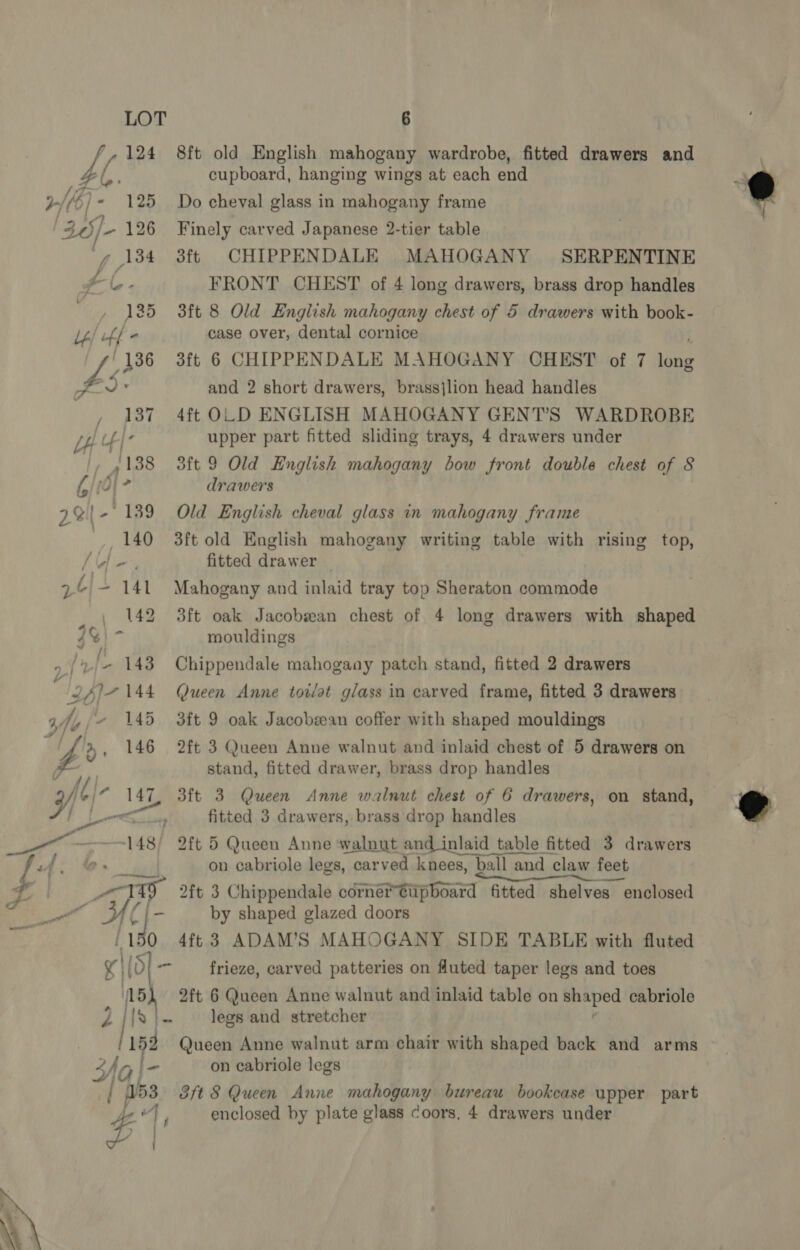 LOT 6
124 8ft old English mahogany wardrobe, fitted drawers and
cupboard, hanging wings at each end
125 Do cheval glass in mahogany frame
126 Finely carved Japanese 2-tier table
134 3ft CHIPPENDALE MAHOGANY SERPENTINE
FRONT CHEST of 4 long drawers, brass drop handles
135 3ft 8 Old English mahogany chest of 5 drawers with book-
case over, dental cornice
136 3ft 6 CHIPPENDALE MAHOGANY CHEST of 7 long
and 2 short drawers, brass lion head handles
137 4ft OLD ENGLISH MAHOGANY GENT'S WARDROBE
upper part fitted sliding trays, 4 drawers under
138 3ft 9 Old English mahogany bow front double chest of 8
drawers
139 Old English cheval glass in mahogany frame
140 3ft old English mahogany writing table with rising top,
fitted drawer
141 Mahogany and inlaid tray top Sheraton commode
142 3ft oak Jacobæan chest of 4 long drawers with shaped
mouldings
143 Chippendale mahogany patch stand, fitted 2 drawers
144 Queen Anne toilet glass in carved frame, fitted 3 drawers
145 3ft 9 oak Jacobæan coffer with shaped mouldings
146 2ft 3 Queen Anne walnut and inlaid chest of 5 drawers on
stand, fitted drawer, brass drop handles
147 3ft 3 Queen Anne walnut chest of 6 drawers, on stand,
fitted 3 drawers, brass drop handles
148 2ft 5 Queen Anne walnut and inlaid table fitted 3 drawers
on cabriole legs, carved knees, ball and claw feet
149 2ft 3 Chippendale corner cupboard fitted shelves enclosed
by shaped glazed doors
150 4ft 3 ADAM'S MAHOGANY SIDE TABLE with fluted
frieze, carved patteries on fluted taper legs and toes
151 2ft 6 Queen Anne walnut and inlaid table on shaped cabriole
legs and stretcher
152 Queen Anne walnut arm chair with shaped back and arms
on cabriole legs
153 3ft 8 Queen Anne mahogany bureau bookcase upper part
enclosed by plate glass doors, 4 drawers under